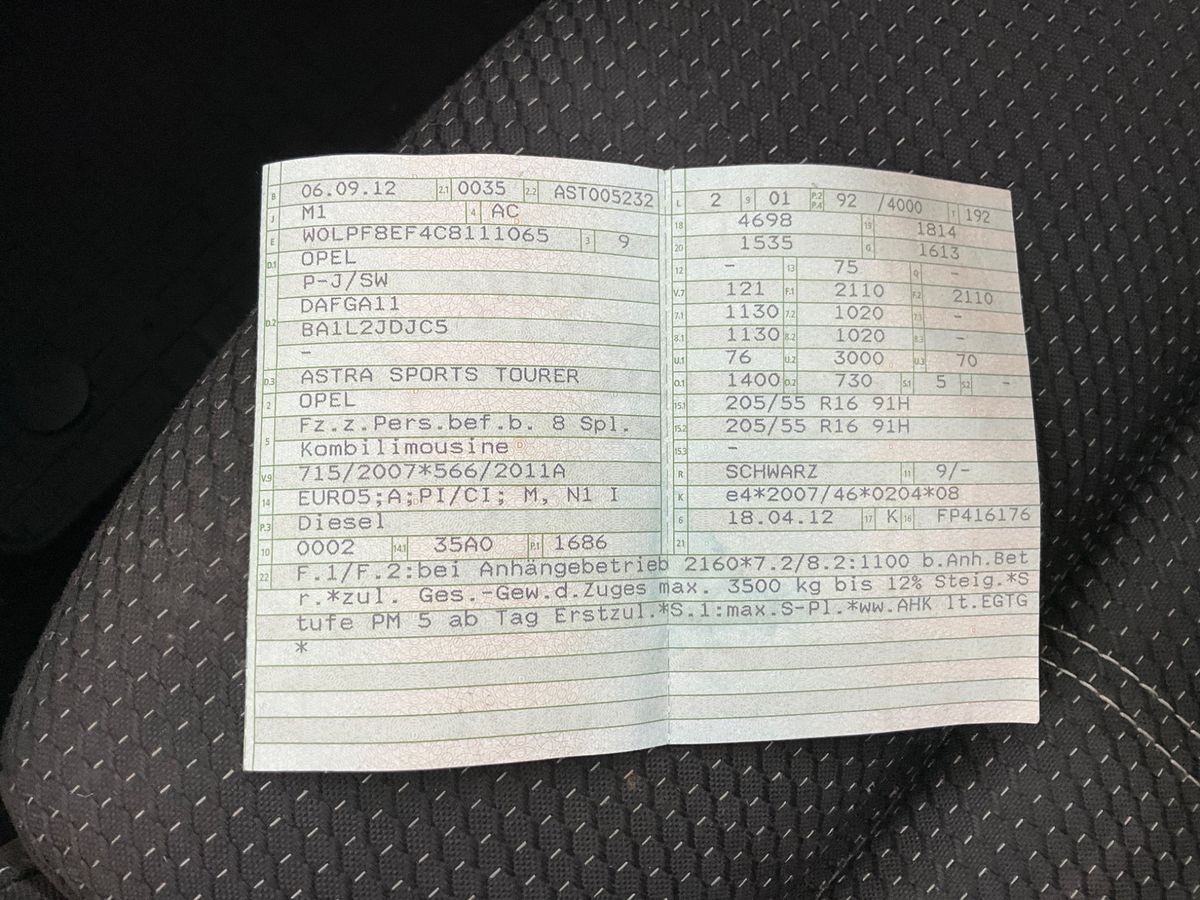 B 06.09.12 2.1 0035 2.2 AST005232
J M1 4 AC
E W0LPF8EF4C8111065 3 9
D.1 OPEL
P-J/SW
DAFGA11
D.2 BA1L2JDJC5
–
D.3 ASTRA SPORTS TOURER
2 OPEL
5 Fz.z.Pers.bef.b. 8 Spl.
Kombilimousine
V.9 715/2007*566/2011A
14 EURO5;A;PI/CI; M, N1 I
P.3 Diesel
10 0002 14.1 35A0 P.1 1686
L 2 9 01 P.2 P.4 92 /4000 T 192
18 4698 19 1814
20 1535 G 1613
12 – 13 75 Q –
V.7 121 F.1 2110 F.2 2110
7.1 1130 7.2 1020 7.3 –
8.1 1130 8.2 1020 8.3 –
U.1 76 U.2 3000 U.3 70
O.1 1400 O.2 730 S.1 5 S.2 –
15.1 205/55 R16 91H
15.2 205/55 R16 91H
15.3 –
R SCHWARZ 11 9/–
K e4*2007/46*0204*08
6 18.04.12 17 K 16 FP416176
21
22 F.1/F.2:bei Anhängebetrieb 2160*7.2/8.2:1100 b.Anh.Bet
r.*zul. Ges.-Gew.d.Zuges max. 3500 kg bis 12% Steig.*S
tufe PM 5 ab Tag Erstzul.*S.1:max.S-Pl.*ww.AHK lt.EGTG
*